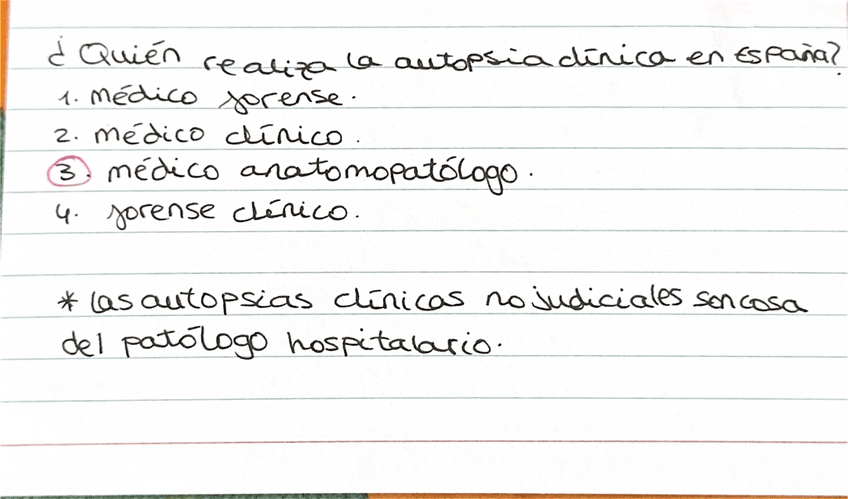 ¿Quién realiza la autopsia clínica en España?
1. médico forense.
2. médico clínico.
3. médico anatomopatólogo.
4. forense clínico.
* las autopsias clínicas no judiciales son cosa
del patólogo hospitalario.